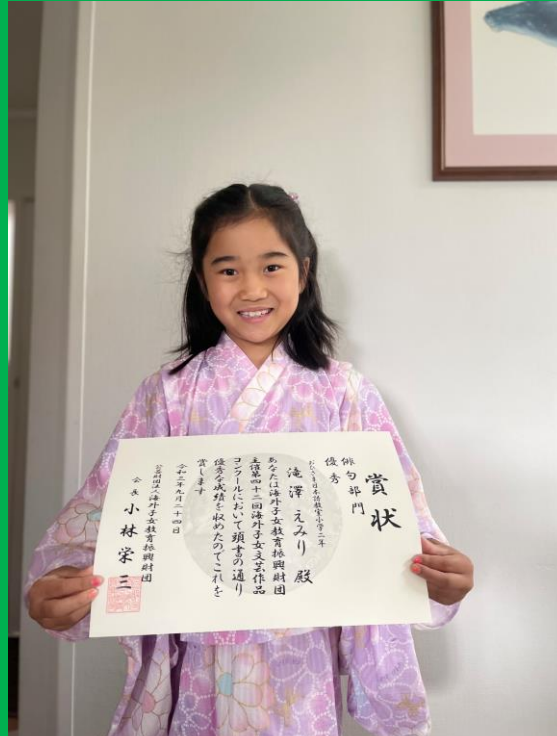 賞状
俳句部門
優秀
おひさま日本語教室小学二年
滝澤 えみり 殿
あなたは海外子女教育振興財団
主催第四十二回海外子女文芸作品
コンクールにおいて頭書の通り
優秀な成績を収めたのでこれを
賞します
令和三年九月二十四日
公益財団法人海外子女教育振興財団
会長 小林栄三